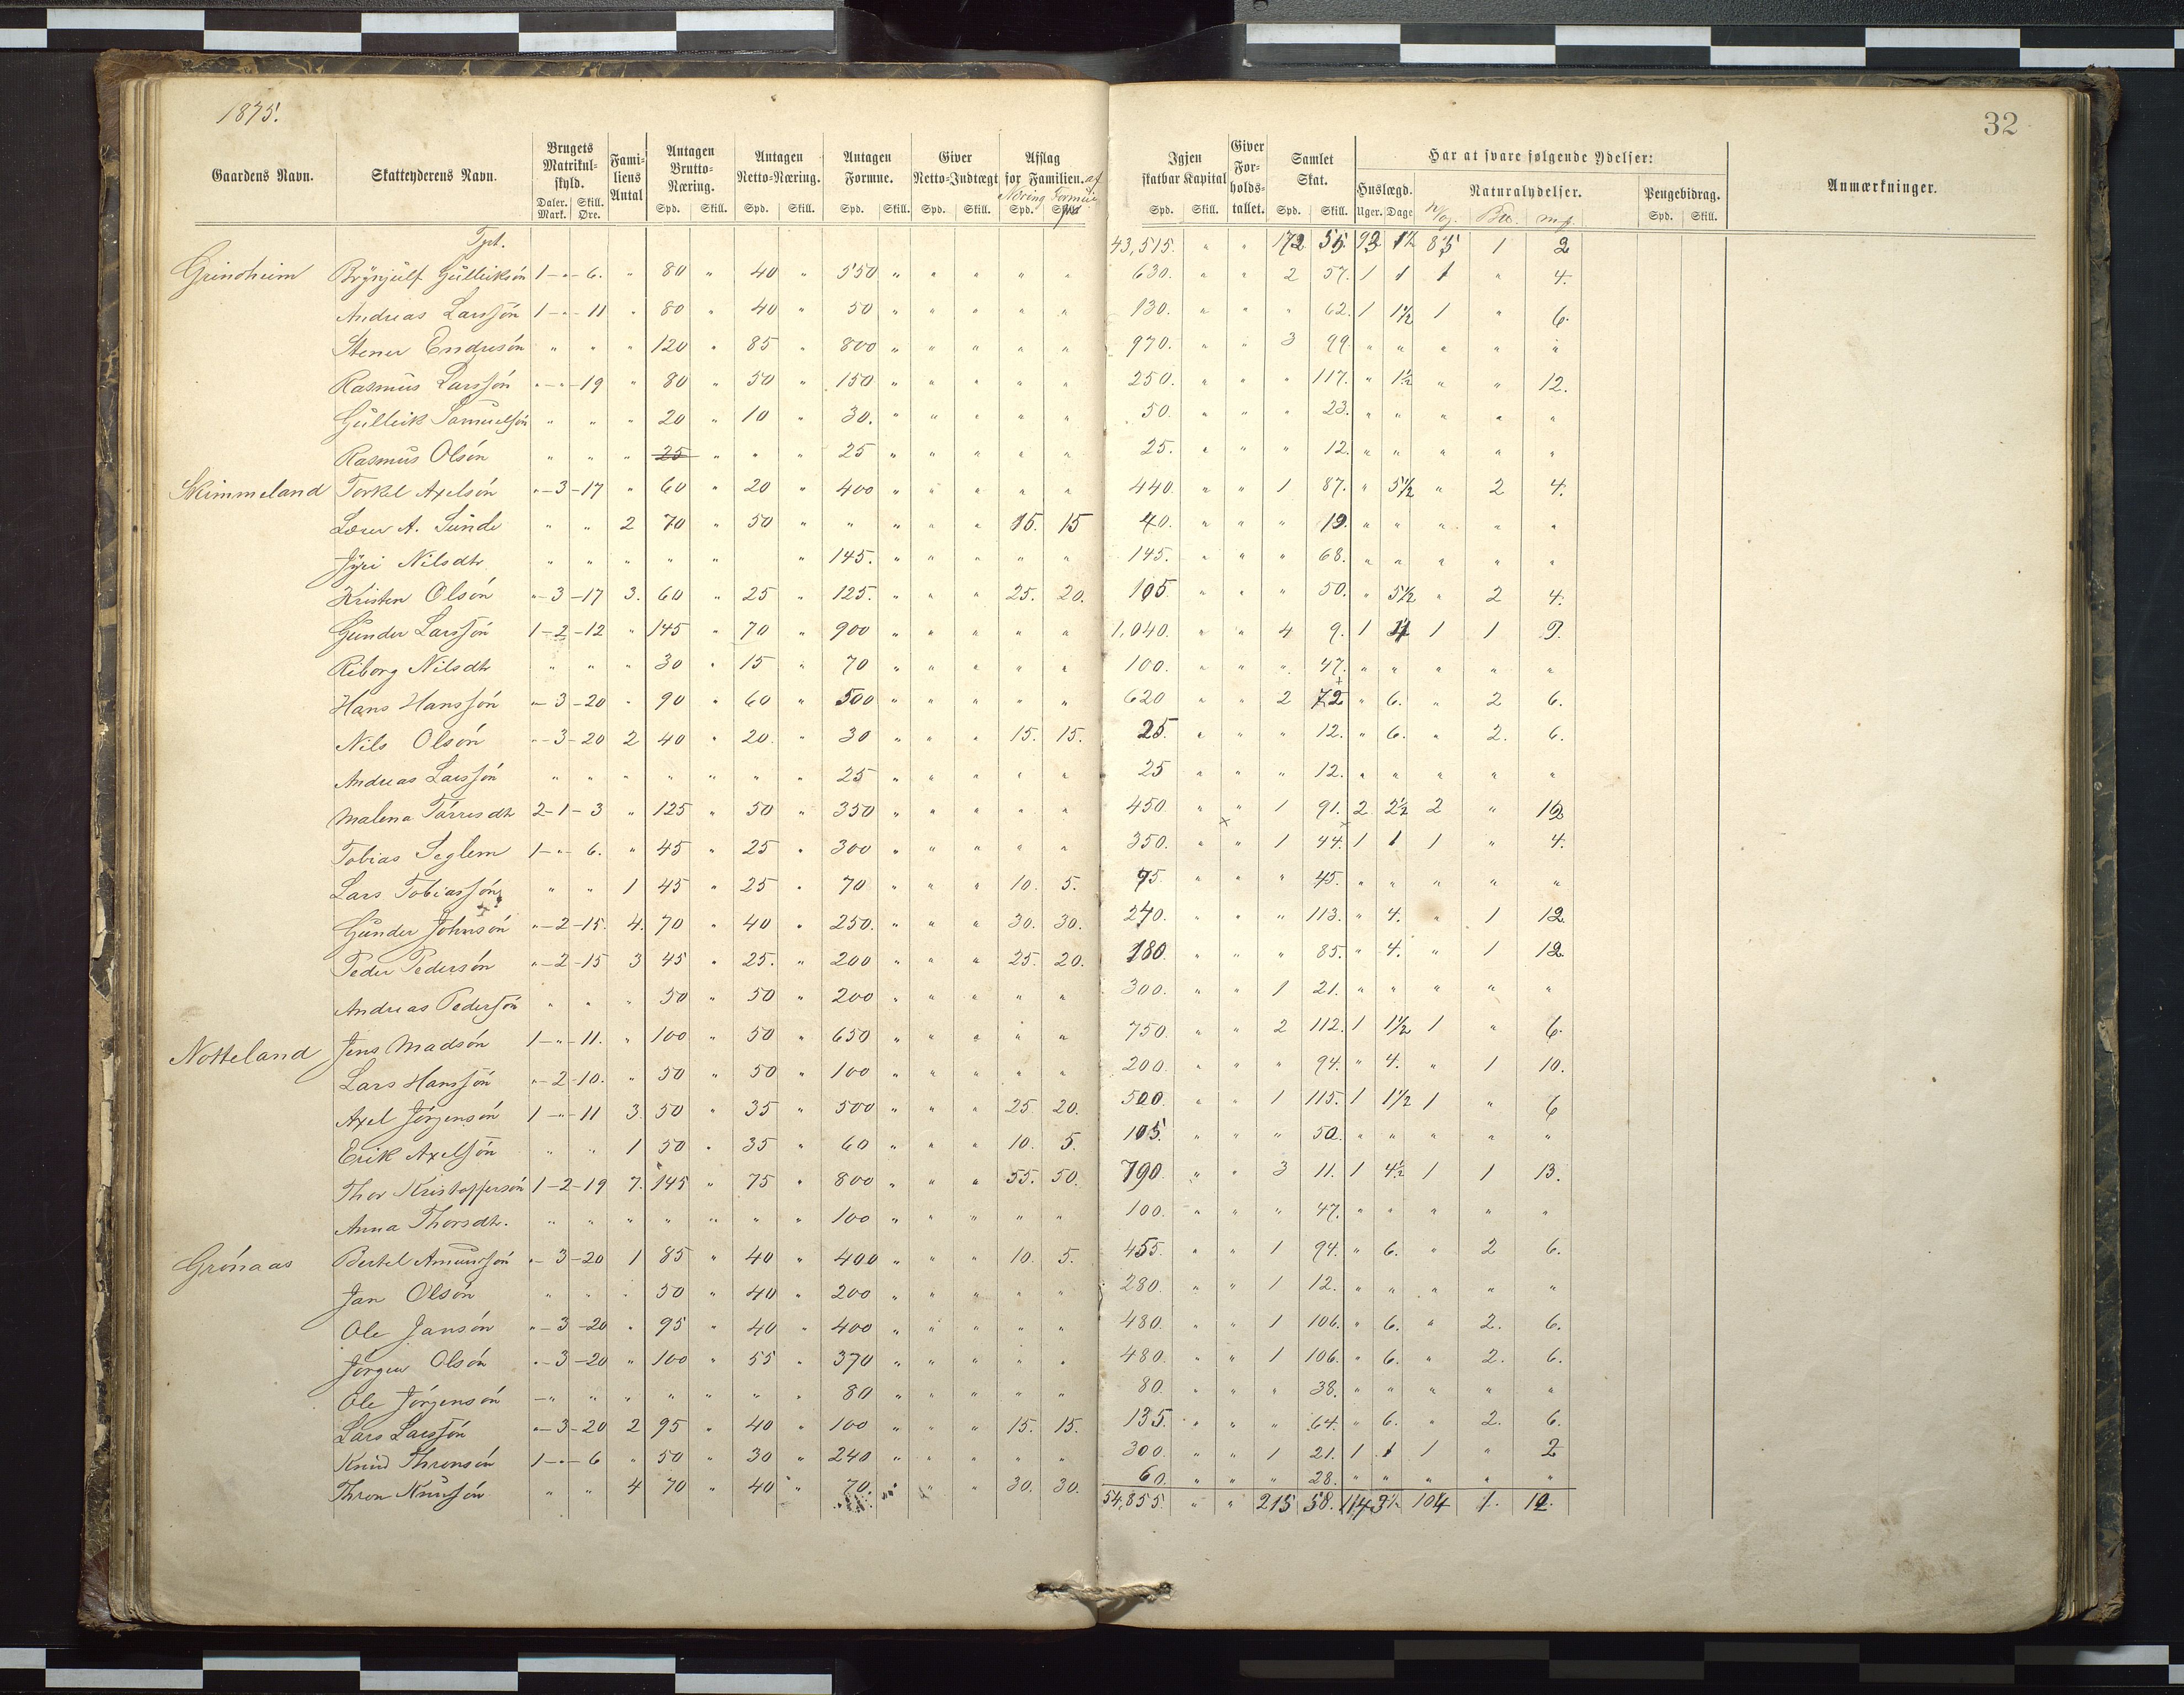 1875.
32
Gaardens Navn. Skatteyderens Navn. Brugets Matrikul-skyld. Daler. Mark. Skill. Øre. Fami-liens Antal Antagen Brutto-Næring. Spd. Skill. Antagen Netto-Næring. Spd. Skill. Antagen Formue. Spd. Skill. Giver Netto-Indtægt Spd. Skill. Afslag for Familien. af Næring Formue Spd. Igjen skatbar Kapital Spd. Skill. Giver For-holds-tallet. Samlet Skat. Spd. Skill. Har at svare følgende Ydelser: Huslægd. Uger. Dage Naturalydelser. Bu. mp. Pengebidrag. Spd. Skill. Anmærkninger.
Tpt. 43,515. " " 172 55. 93 1½ 85 1 2
Grindheim Brynjulf Gulleiksón 1-"-6. " 80 " 40 " 550 " " " " " 630. " " 2 57. 1 1 1 " 4.
Andreas Larssón 1-"-11 " 80 " 40 " 50 " " " " " 130. " " " 62. 1 1½ 1 " 6.
Stener Endresón " " " 120 " 85 " 800 " " " " " 970. " " 3 99. " " " " "
Rasmus Larssón "-"-19 " 80 " 50 " 150 " " " " " 250. " " " 117. " 1½ " " 12.
Gulleik Samuelsón " " " 20 " 10 " 30. " " " " " 50. " " " 23. " " " " "
Rasmus Olsón " " " 25 " " " 25 " " " " " 25. " " " 12. " " " " "
Skimmeland Torkel Axelsón "-3-17 " 60 " 20 " 400 " " " " " 440. " " 1 87. " 5½ " 2 4.
Lærer A. Sunde " " 2 70 " 50 " " " " " 15. 15 40. " " " 19. " " " " "
Jyri Nilsdtr " " " " " " " 145. " " " " " 145. " " " 68. " " " " "
Kristen Olsón "-3-17 3. 60 " 25 " 125. " " " 25. 20. 105. " " " 50. " 5½ " 2 4.
Gunder Larssón 1-2-12 " 145 " 70 " 900 " " " " " 1,040. " " 4 9. 1 4 1 1 9.
Riborg Nilsdtr " " " 30 " 15 " 70 " " " " " 100. " " " 47. " " " " "
Hans Hanssón "-3-20 " 90 " 60 " 500 " " " " " 620 " " 2 72 " 6. " 2 6.
Nils Olsón "-3-20 2 40 " 20. " 30 " " " 15. 15. 25. " " " 12. " 6. " 2. 6.
Andreas Larssón " " " " " " " 25 " " " " " 25 " " " 12. " " " " "
Malena Tárresdtr 2-1-3 " 125 " 50 " 350 " " " " " 450 " " 1 91. 2 2½ 2 " 12
Tobias Seglem 1-"-6. " 45 " 25 " 300 " " " " " 350. " " 1 44. 1 1 1 " 4.
Lars Tobiassón " " 1 45 " 25 " 70 " " " 10. 5. 95. " " " 45. " " " " "
Gunder Johnsón "-2-15. 4. 70 " 40 " 250. " " " 30. 30. 240. " " " 113. " 4. " 1 12.
Peder Pedersón "-2-15 3 45 " 25. " 200 " " " 25. 20. 180. " " " 85. " 4. " 1 12.
Andreas Pedersón " " " 50 " 50 " 200 " " " " " 300. " " 1 21. " " " " "
Notteland Jens Madsón 1-"-11. " 100 " 50 " 650 " " " " " 750. " " 2 112. 1 1½ 1 " 6.
Lars Hanssón "-2-10. " 50 " 50 " 100 " " " " " 200. " " " 94. " 4. " 1 10.
Axel Jörgensón 1-"-11 3. 50 " 35 " 500 " " " 25. 20. 500. " " 1 115. 1 1½ 1 " 6
Erik Axelsón " " 1 50 " 35 " 60 " " " 10. 5. 105. " " " 50. " " " " "
Thor Kristoffersón 1-2-19 7. 145 " 75 " 800 " " " 55. 50. 790. " " 3 11. 1 4½ 1 1 13.
Anna Thorsdtr. " " " " " " " 100 " " " " " 100. " " " 47. " " " " "
Grónaas Bertel Amunssón "-3-20 1 85 " 40 " 400 " " " 10. 5. 455. " " 1 94. " 6. " 2 6.
Jan Olsón " " " 50 " 40 " 200 " " " " " 280. " " 1 12. " " " " "
Ole Jansón "-3-20 " 95 " 40 " 400 " " " " " 480. " " 1 106. " 6. " 2. 6.
Jörgen Olsón "-3-20 " 100 " 55 " 370 " " " " " 480. " " 1 106. " 6. " 2. 6.
Ole Jörgensón " " " " " " " 80 " " " " " 80. " " " 38. " " " " "
Lars Larssón "-3-20 2 95 " 40 " 100 " " " 15. 15. 135. " " " 64. " 6. " 2. 6.
Knud Thronsón 1-"-6 " 50 " 30 " 240 " " " " " 300. " " 1 21. 1 1 1 " 2
Thron Knussón " " 4 70 " 40 " 70. " " " 30. 30. 60. " " " 28. " " " " "
54,855. " " 215 58. 114 3½ 104 1. 12.